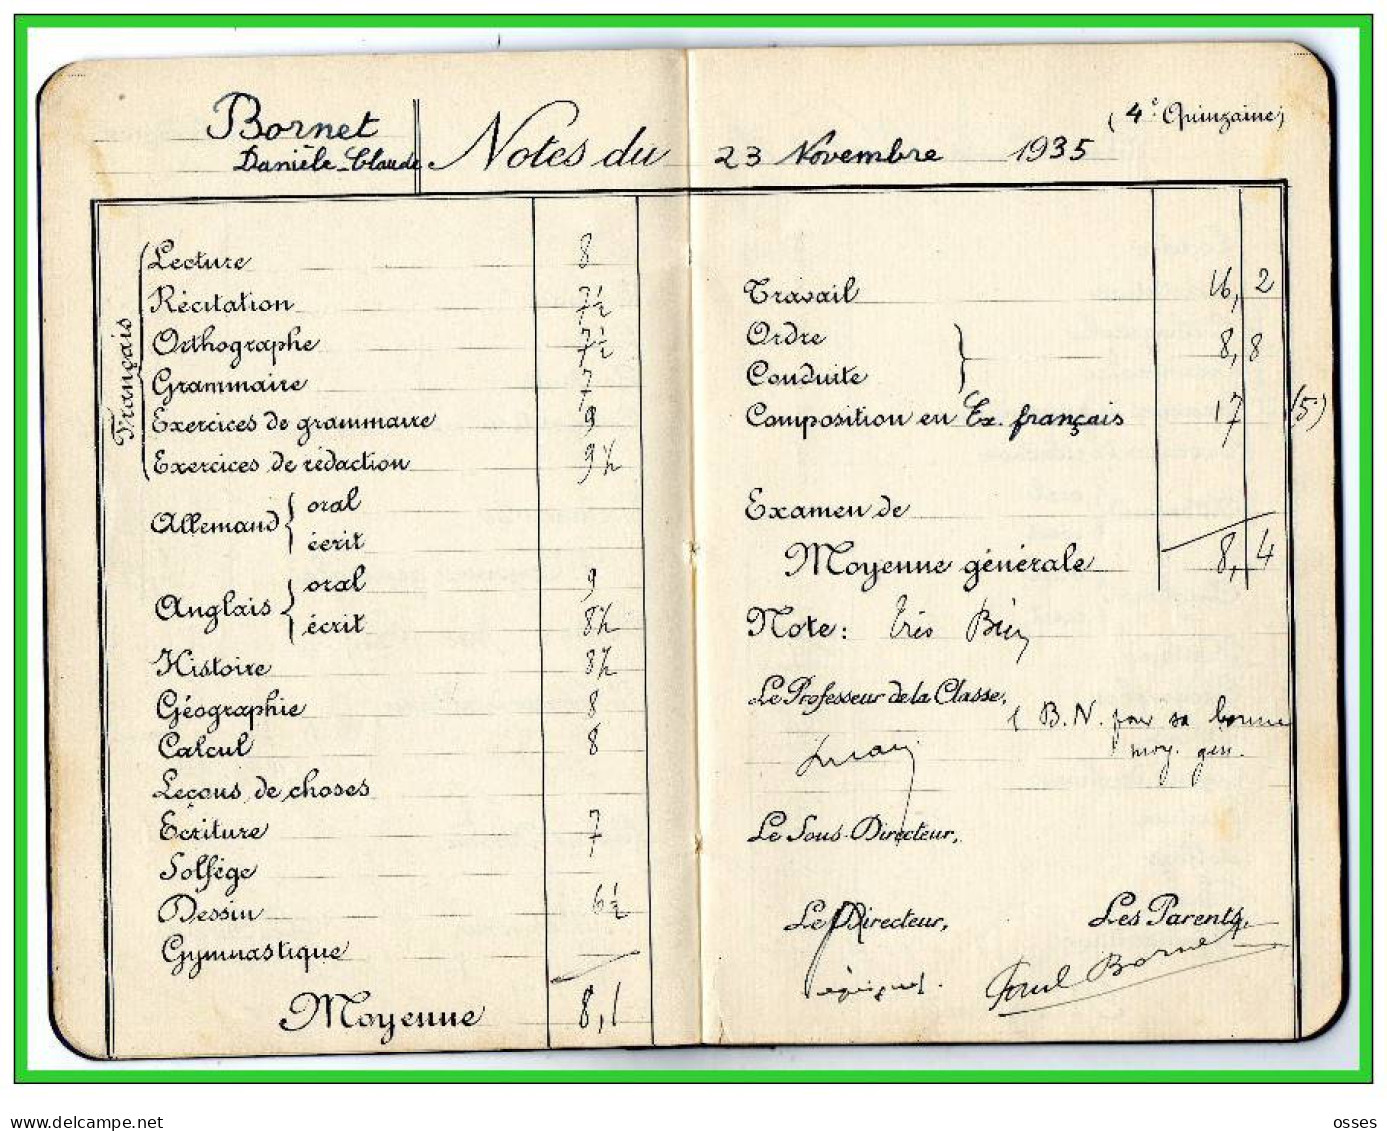 Bornet
Danièle-Claude
Notes du 23 Novembre 1935
(4e Quinzaine)
Français
Lecture 8
Récitation 7 1/2
Orthographe 7 1/2
Grammaire 7
Exercices de grammaire 9
Exercices de rédaction 9 1/2
Allemand { oral
écrit
Anglais { oral 9
écrit 8 1/2
Histoire 8 1/2
Géographie 8
Calcul 8
Leçons de choses
Écriture 7
Solfège
Dessin 6 1/2
Gymnastique
Moyenne 8,1
Travail 16,2
Ordre
Conduite } 8,8
Composition en Ex. français 17 (5)
Examen de
Moyenne générale 8,4
Note: Très Bien
Le Professeur de la Classe,
( B.N. pour sa bonne
moy. gén.
Le Sous-Directeur,
Le Directeur,
Les Parents,
Paul Bornet
www.delcampe.net
osses